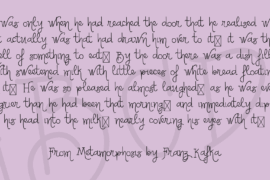 was only when he had reached the door that he realised w
t actually was that had drawn him over to it▯ it was th
ell of something to eat▯ By the door there was a dish fill
th sweetened milk with little pieces of white bread floatin
it▯ He was so pleased he almost laughed▯ as he was eve
grier than he had been that morning▯ and immediately dip
his head into the milk▯ nearly covering his eyes with it▯
From Metamorphosis by Franz Kafka